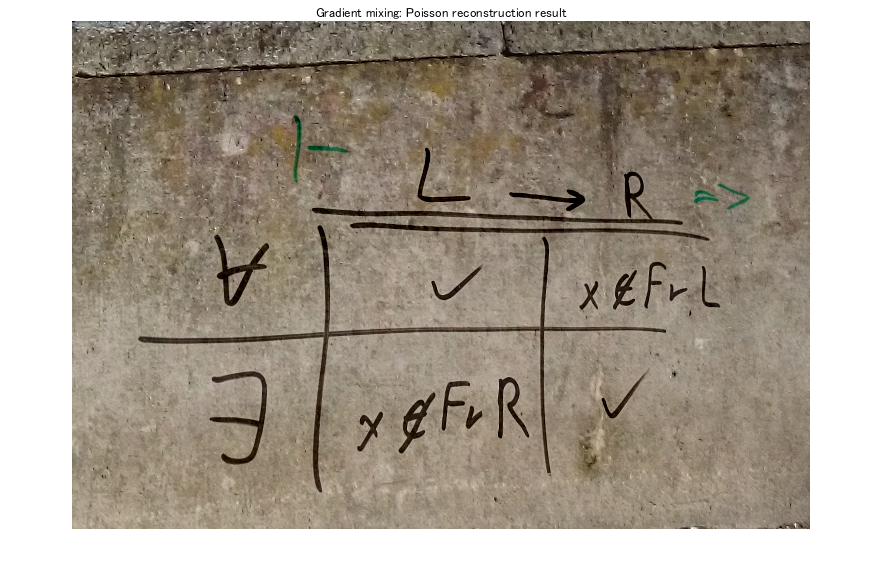 Gradient mixing: Poisson reconstruction result
⊢ L → R ⇒
∀ ✓ x ∉ Fr L
∃ x ∉ Fr R ✓